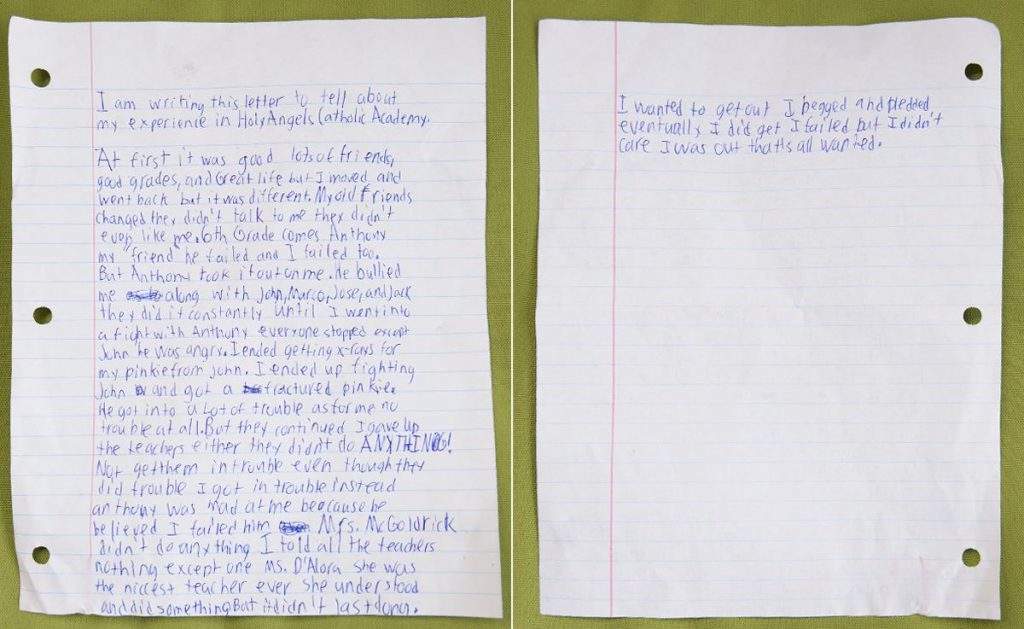 I am writing this letter to tell about
my experience in Holy Angels Catholic Academy.
At first it was good lots of friends,
good grades, and Great life but I moved and
went back but it was different. My old friends
changed they didn't talk to me they didn't
even like me. 6th Grade comes Anthony
my "friend" he failed and I failed too.
But Anthony took it out on me. He bullied
me along with John, Marco, Jose, and Jack
they did it constantly until I went into
a fight with Anthony everyone stopped except
John he was angry. I ended getting x-rays for
my pinkie from John. I ended up fighting
John and got a fractured pinkie.
He got into a lot of trouble as for me no
trouble at all. But they continued I gave up
the teachers either they didn't do ANYTHING!
Not get them in trouble even though they
did trouble I got in trouble instead
anthony was mad at me beacause he
believed I failed him Mrs. McGoldrick
didn't do anything I told all the teachers
nothing except one Ms. D'Alora she was
the nicest teacher ever she understood
and did something But it didn't last long.
I wanted to get out I begged and pledded
eventually I did get I failed but I didn't
care I was out that's all wanted.